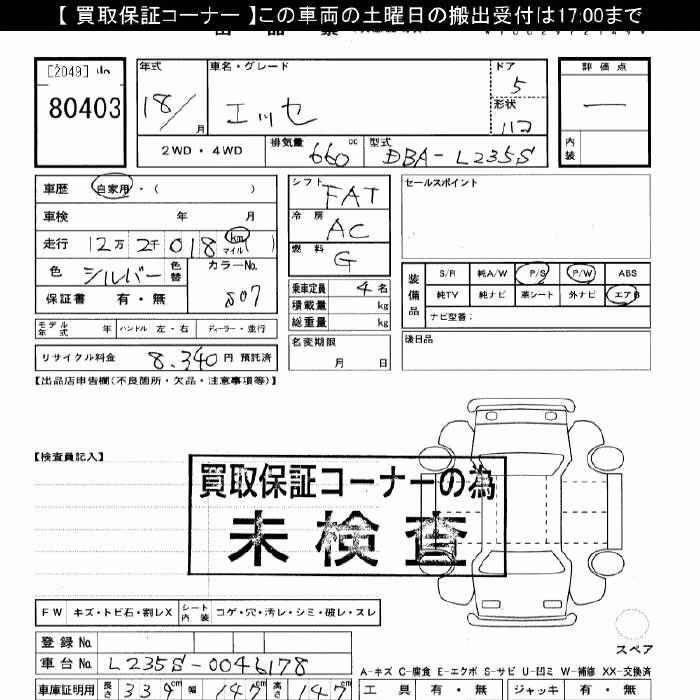 【 買取保証コーナー 】この車両の土曜日の搬出受付は17:00まで
[2049]
80403
年式
18/
月
車名・グレード
エッセ
ドア
5
形状
112
評価点
—
内装
2WD・4WD
排気量
660
cc
型式
DBA-L235S
車歴 自家用・( )
車検 年 月
走行 12万 2千 018 km マイル ( )
色 シルバー 色替
カラーNo.
S07
保証書 有・無
シフト FAT
冷房 AC
燃料 G
乗車定員 4 名
積載量 kg
総重量 kg
名変期限
月 日
セールスポイント
装備品
S/R 純A/W P/S P/W ABS
純TV 純ナビ 革シート 外ナビ エアB
ナビ型番:
後日品
モデル年式 年 ハンドル 左・右 ディーラー・並行
リサイクル料金 8,340 円 預託済
【出品店申告欄(不良箇所・欠品・注意事項等)】
【検査員記入】
買取保証コーナーの為
未検査
FW キズ・トビ石・割レX シート内装 コゲ・穴・汚レ・シミ・破レ・スレ
スペア
登録 No.
車台 No. L235S-0046178
A-キズ C-腐食 E-エクボ S-サビ U-凹ミ W-補修 XX-交換済
車庫証明用 長さ 339 cm 幅 147 cm 高さ 147 cm
工具 有・無 ジャッキ 有・無